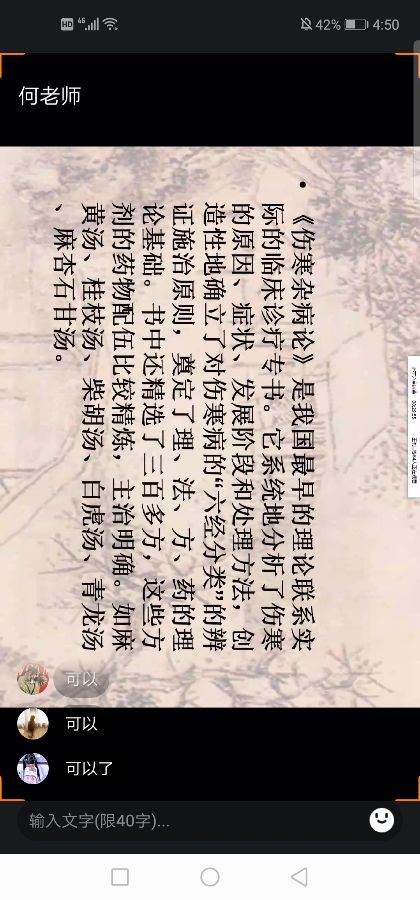 HD 4G 42% 4:50
何老师
• 《伤寒杂病论》是我国最早的理论联系实
际的临床诊疗专书。它系统地分析了伤寒
的原因、症状、发展阶段和处理方法，创
造性地确立了对伤寒病的“六经分类”的辨
证施治原则，奠定了理、法、方、药的理
论基础。书中还精选了三百多方，这些方
剂的药物配伍比较精炼，主治明确。如麻
黄汤、桂枝汤、柴胡汤、白虎汤、青龙汤
、麻杏石甘汤。
可以
可以
可以了
输入文字(限40字)...